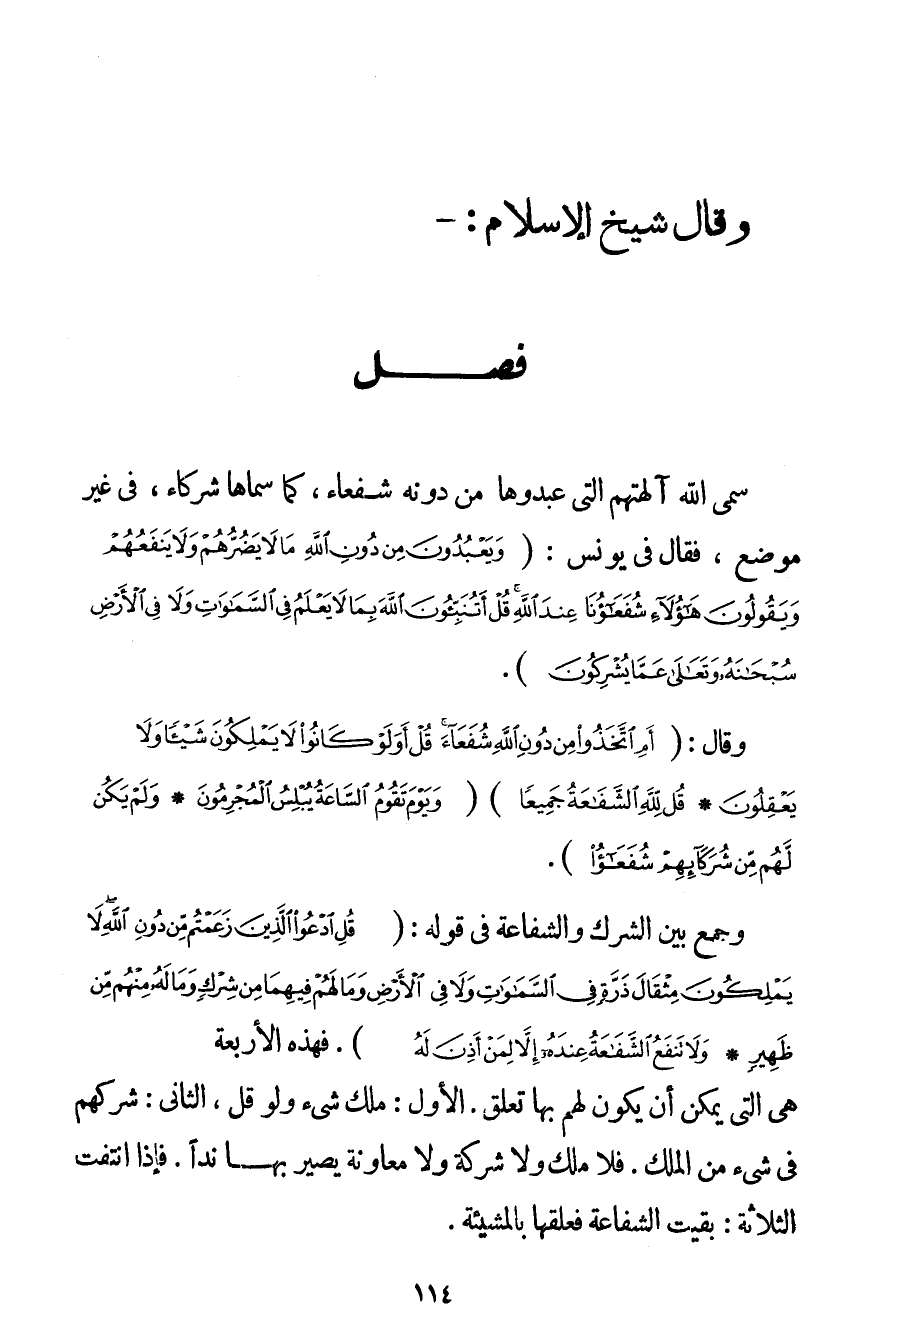 وقال شيخ الإسلام : –
فصـــــل
سمى الله آلهتهم التى عبدوها من دونه شفعاء ، كما سماها شركاء ، فى غير
موضع ، فقال فى يونس : ( وَيَعْبُدُونَ مِن دُونِ ٱللَّهِ مَا لَا يَضُرُّهُمْ وَلَا يَنفَعُهُمْ
وَيَقُولُونَ هَٰٓؤُلَآءِ شُفَعَٰٓؤُنَا عِندَ ٱللَّهِ ۚ قُلْ أَتُنَبِّئُونَ ٱللَّهَ بِمَا لَا يَعْلَمُ فِى ٱلسَّمَٰوَٰتِ وَلَا فِى ٱلْأَرْضِ
سُبْحَٰنَهُۥ وَتَعَٰلَىٰ عَمَّا يُشْرِكُونَ ) .
وقال : ( أَمِ ٱتَّخَذُوا۟ مِن دُونِ ٱللَّهِ شُفَعَآءَ ۚ قُلْ أَوَلَوْ كَانُوا۟ لَا يَمْلِكُونَ شَيْـًٔا وَلَا
يَعْقِلُونَ * قُل لِّلَّهِ ٱلشَّفَٰعَةُ جَمِيعًا ) ( وَيَوْمَ تَقُومُ ٱلسَّاعَةُ يُبْلِسُ ٱلْمُجْرِمُونَ * وَلَمْ يَكُن
لَّهُم مِّن شُرَكَآئِهِمْ شُفَعَٰٓؤُا۟ ) .
وجمع بين الشرك والشفاعة فى قوله : ( قُلِ ٱدْعُوا۟ ٱلَّذِينَ زَعَمْتُم مِّن دُونِ ٱللَّهِ ۖ لَا
يَمْلِكُونَ مِثْقَالَ ذَرَّةٍ فِى ٱلسَّمَٰوَٰتِ وَلَا فِى ٱلْأَرْضِ وَمَا لَهُمْ فِيهِمَا مِن شِرْكٍ وَمَا لَهُۥ مِنْهُم مِّن
ظَهِيرٍ * وَلَا تَنفَعُ ٱلشَّفَٰعَةُ عِندَهُۥٓ إِلَّا لِمَنْ أَذِنَ لَهُۥ ) . فهذه الأربعة
هى التى يمكن أن يكون لهم بها تعلق . الأول : ملك شىء ولو قل ، الثانى : شركهم
فى شىء من الملك . فلا ملك ولا شركة ولا معاونة يصير بهــا نداً . فإذا انتفت
الثلاثة : بقيت الشفاعة فعلقها بالمشيئة .
١١٤